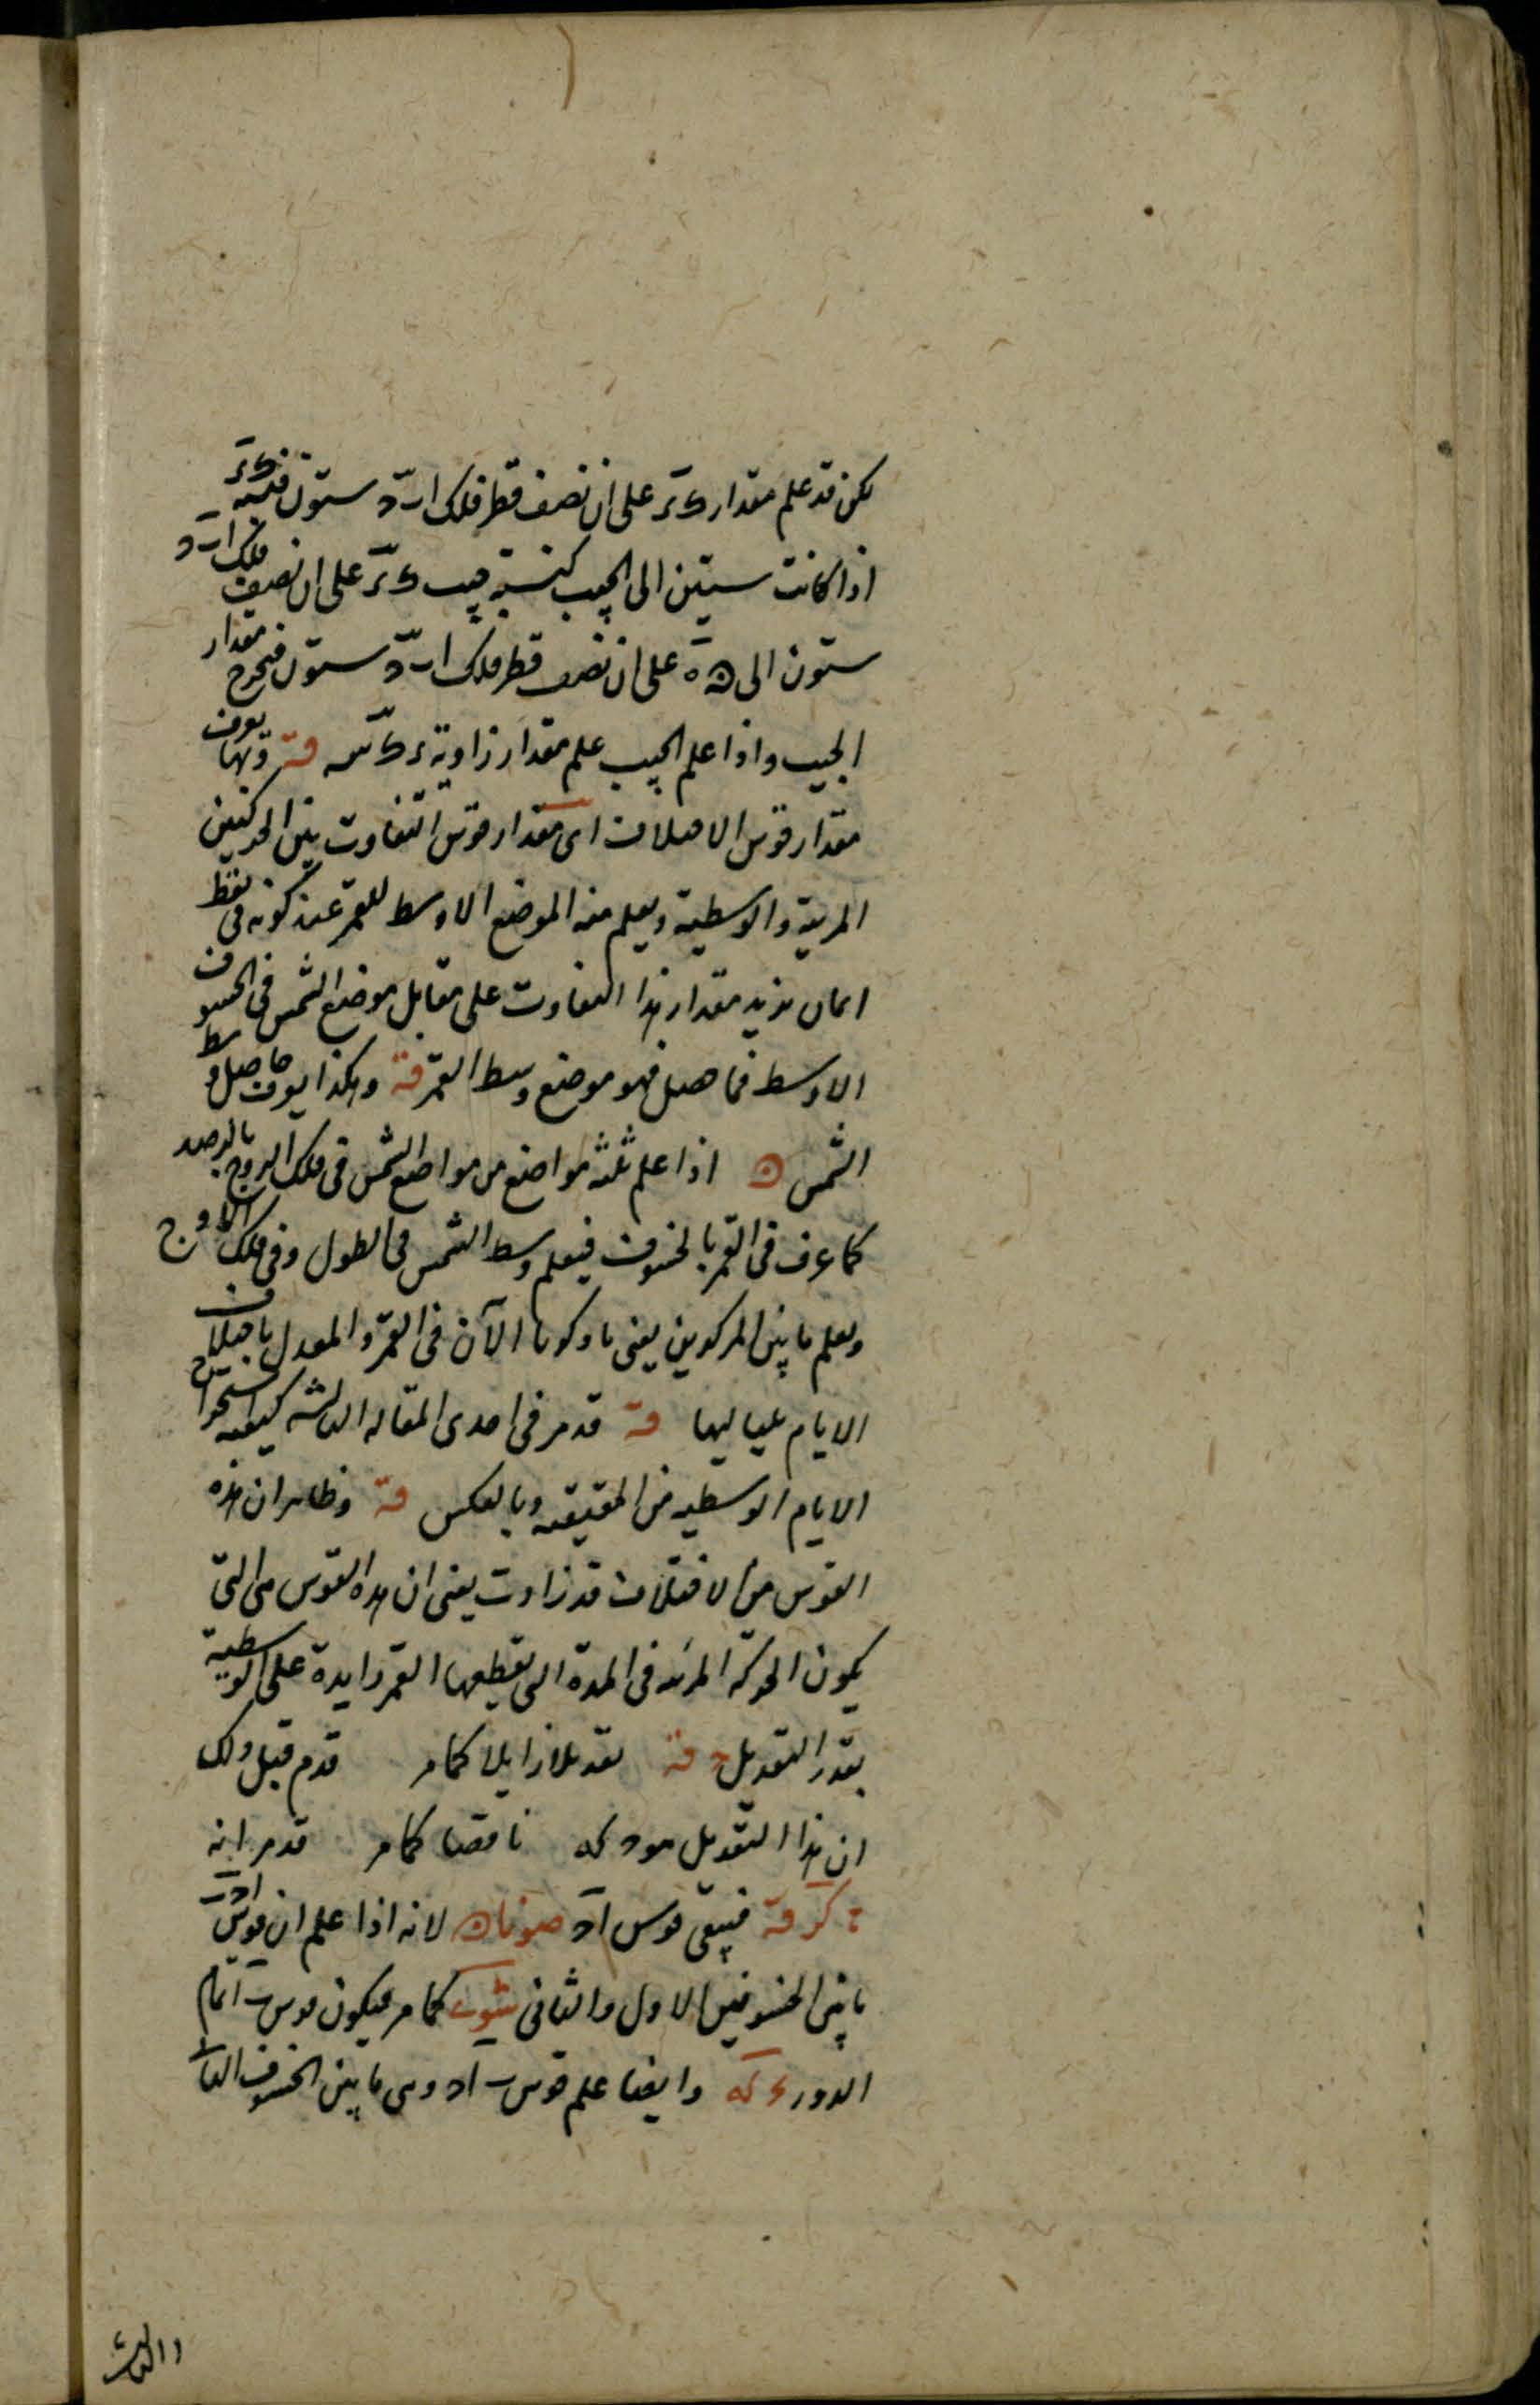 لكن قد علم مقدار كر على ان نصف قطر فلك ا ب د ستون فنسبة كر
اذا كانت ستين الى الجيب كنسبة جيب كر على ان نصف فلك ا ب د
ستون الى ه على ان نصف قطر فلك ا ب د ستون فيخرج مقدار
الجيب واذا علم الجيب علم مقدار زاوية قة وبها يعرف
مقدار قوس الاختلاف اى مقدار قوس التفاوت بين الحركتين
المرئية والوسطية ويعلم منه الموضع الاوسط للقمر عند كونه فى نقطة
ا بان نزيد مقدار هذا التفاوت على مقابل موضع الشمس فى الخسوف
الاوسط فما حصل فهو موضع وسط القمر قة وهكذا يعرف حاصل وسط
الشمس ه اذا علم ثلثة مواضع من مواضع الشمس فى فلك البروج بالرصد
كما عرف فى القمر بالخسوف فيعلم وسط الشمس فى الطول وفى فلك الاوج
ويعلم ما بين المركزين يعنى ما ذكرنا الآن فى القمر والمعدل باختلاف
الايام بلياليها قة قد مر فى احدى المقالة الثالثة كيفية استخراج
الايام الوسطية من الحقيقية وبالعكس قة وظاهر ان هذه
القوس من الاختلاف قد زادت يعنى ان هذه القوس هى التى
يكون الحركة المرئية فى المدة التى يقطعها القمر زايدة على الوسطية
بقدر التعديل قة تعديلا زايدا كما مر قدم قبل ذلك
ان هذا التعديل هو د كه ناقصا كما مر قد مر انه
كر قة فيبقى قوس ا د لانه اذا علم ان قوس ا ب
ما بين الخسوفين الاول والثانى كما مر فيكون قوس ب ا تمام
الدور كه وايضا علم قوس ب ا د وهى ما بين الخسوف الثانى
والثالث